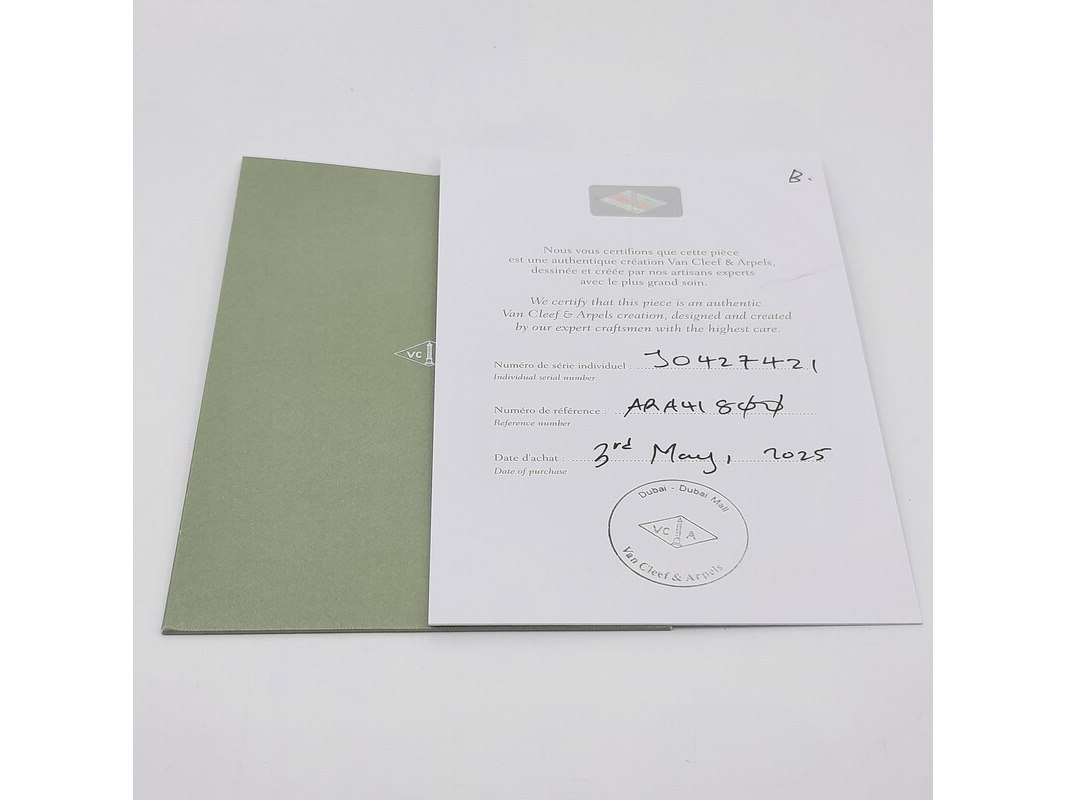 B.
Nous vous certifions que cette pièce
est une authentique création Van Cleef & Arpels,
dessinée et créée par nos artisans experts
avec le plus grand soin.
We certify that this piece is an authentic
Van Cleef & Arpels creation, designed and created
by our expert craftsmen with the highest care.
Numéro de série individuel : JO427421
Individual serial number
Numéro de référence : ARA41800
Reference number
Date d'achat : 3rd May, 2025
Date of purchase
Dubai - Dubai Mall
VC A
Van Cleef & Arpels
VC